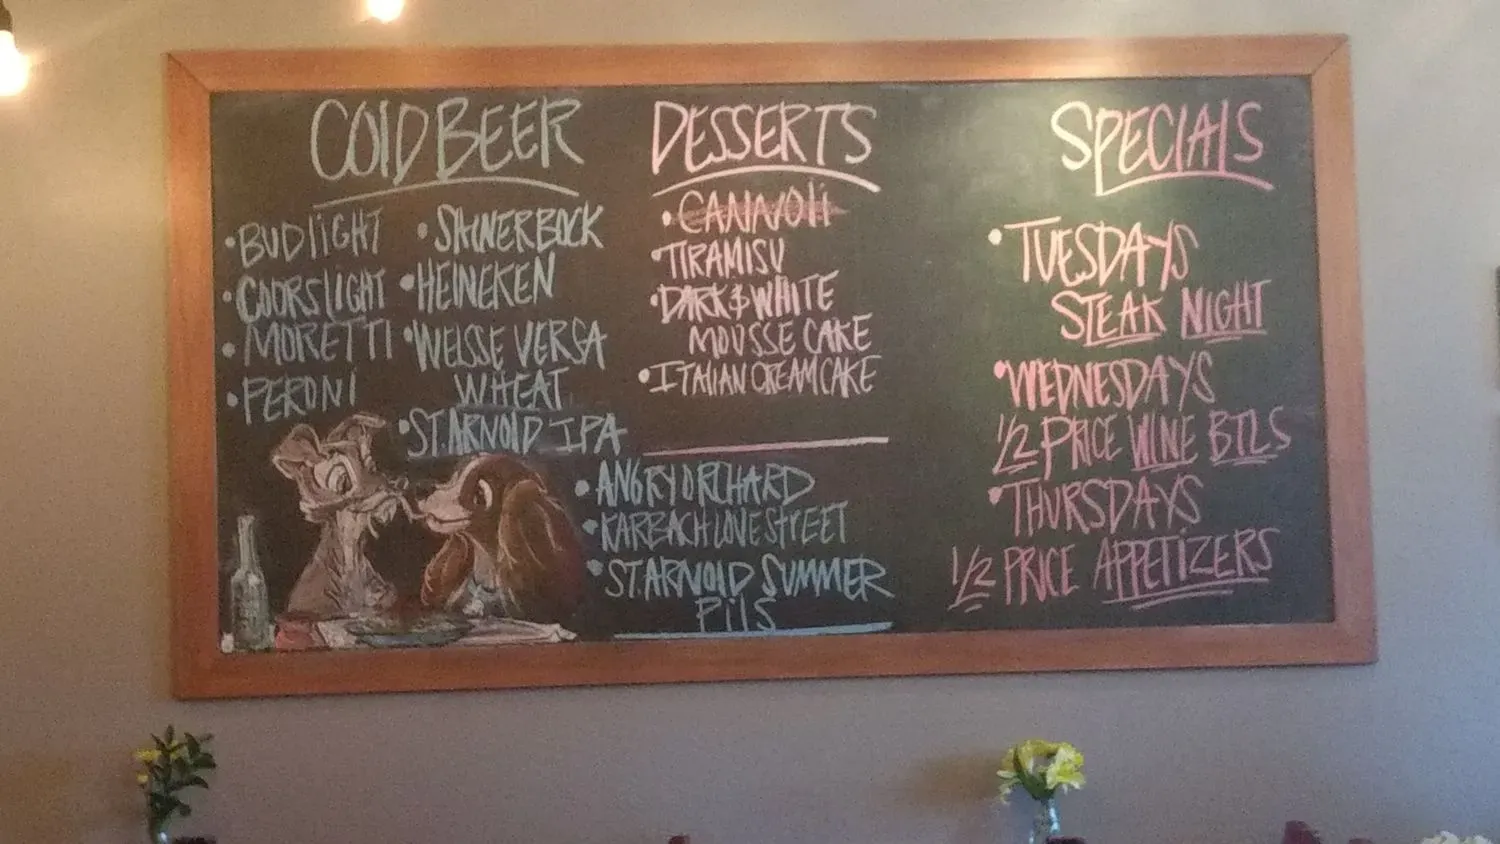 COLD BEER
• BUD LIGHT
• COORS LIGHT
• MORETTI
• PERONI
• SHINER BOCK
• HEINEKEN
• WEISSE VERSA
WHEAT
• ST. ARNOLD IPA
DESSERTS
• CANNOLI
• TIRAMISU
• DARK & WHITE
MOUSSE CAKE
• ITALIAN CREAM CAKE
• ANGRY ORCHARD
• KARBACH LOVE STREET
• ST. ARNOLD SUMMER
PILS
SPECIALS
• TUESDAYS
STEAK NIGHT
• WEDNESDAYS
1/2 PRICE WINE BTLS
• THURSDAYS
1/2 PRICE APPETIZERS